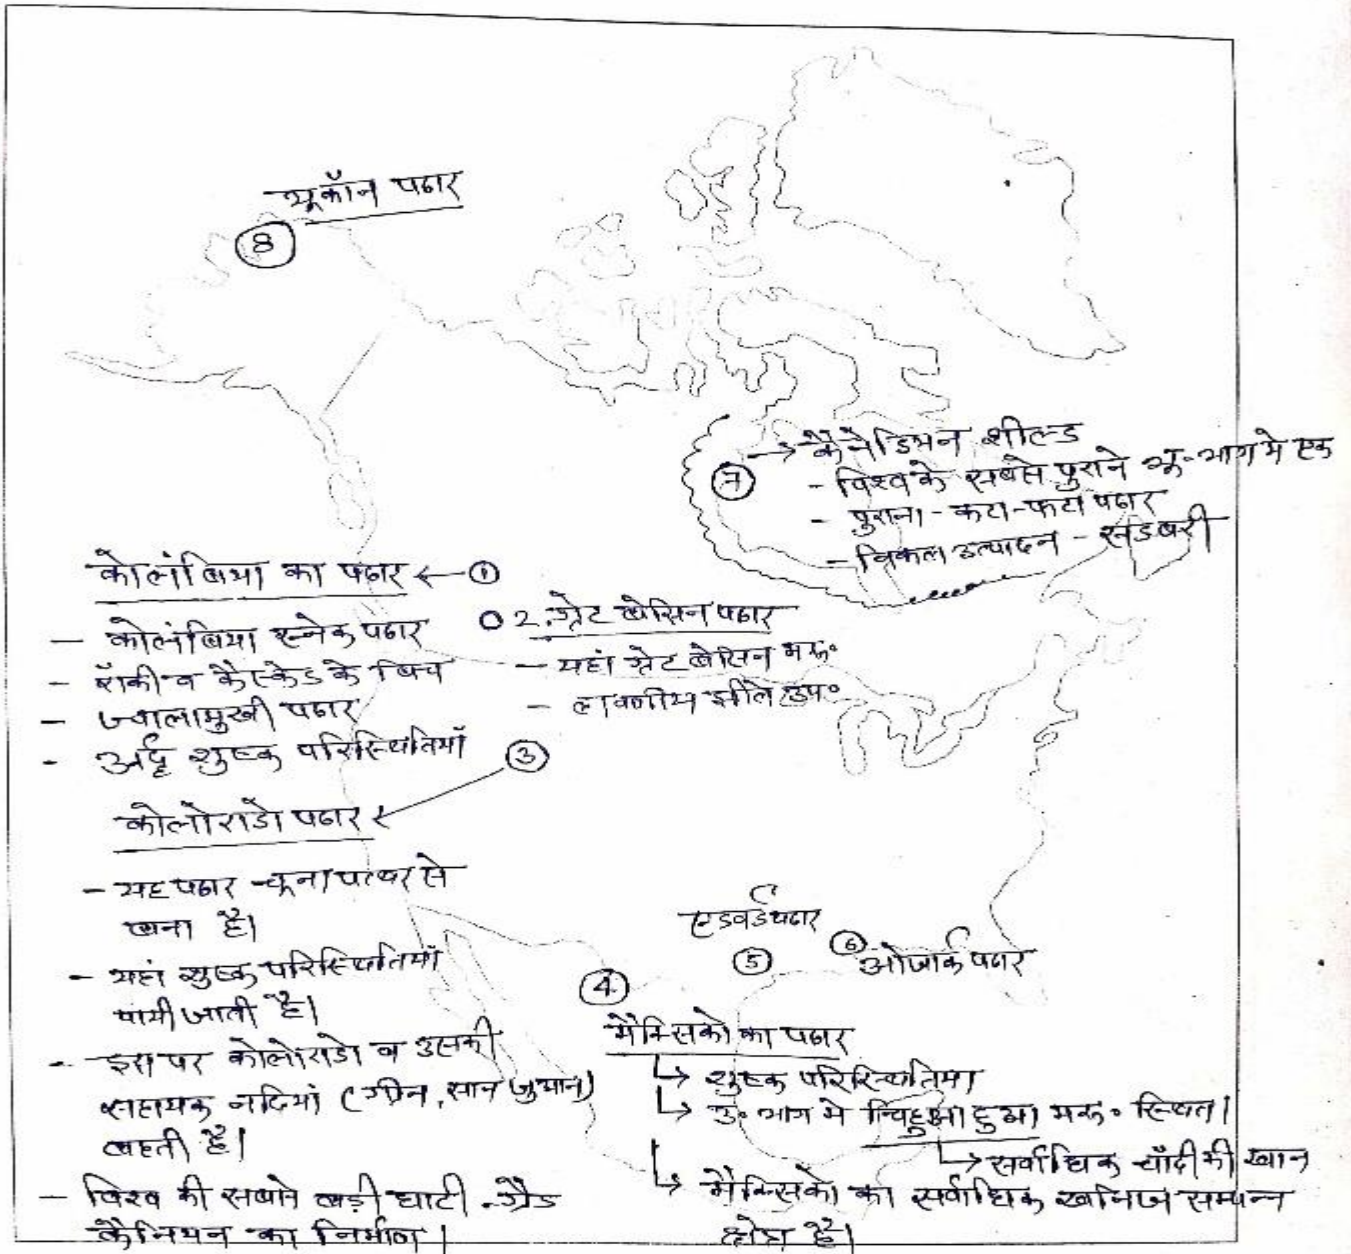 यूकॉन पठार
8
7 → कैनेडियन शील्ड
- विश्व के सबसे पुराने भू-भाग मे एक
- पुराना - कटा-फटा पठार
- निकल उत्पादन - सडबरी
कोलंबिया का पठार ← 1
- कोलंबिया स्नेक पठार
- रॉकी व कैस्केड के बिच
- ज्वालामुखी पठार
- अर्द्ध शुष्क परिस्थितियाँ
2. ग्रेट बेसिन पठार
- यहां ग्रेट बेसिन मरू॰
- लवणीय झीले उप॰
3
कोलोराडो पठार
- यह पठार चूना पत्थर से
बना है।
- यहां शुष्क परिस्थितियाँ
पायी जाती है।
- इस पर कोलोराडो व उसकी
सहायक नदियां (ग्रीन, सान जुआन)
बहती है।
- विश्व की सबसे बड़ी घाटी ग्रैंड
कैनियन का निर्माण।
एडवर्ड पठार
5
6 ओजार्क पठार
4
मैक्सिको का पठार
↳ शुष्क परिस्थितिया
↳ उ॰ भाग मे चिहुआहुआ मरू॰ स्थित।
↳ सर्वाधिक चाँदी की खान
↳ मैक्सिको का सर्वाधिक खनिज सम्पन्न
क्षेत्र है।